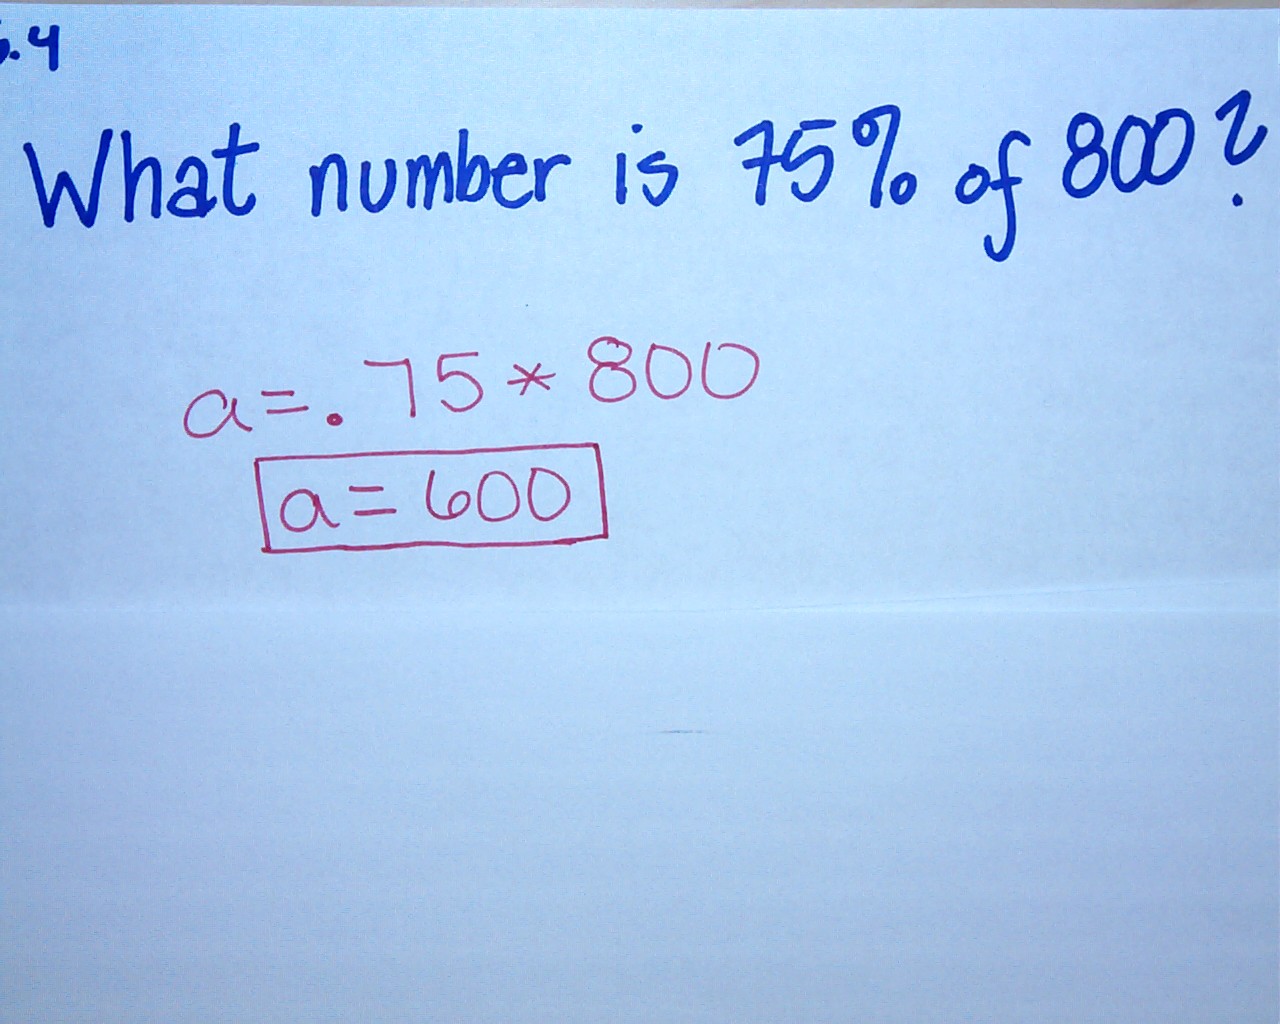 .4
What number is 75% of 800?
a=.75*800
a=600